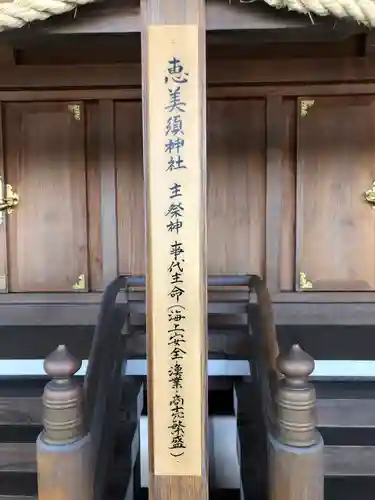 恵美須神社 主祭神 事代主命(海上安全・漁業・商売繁盛)